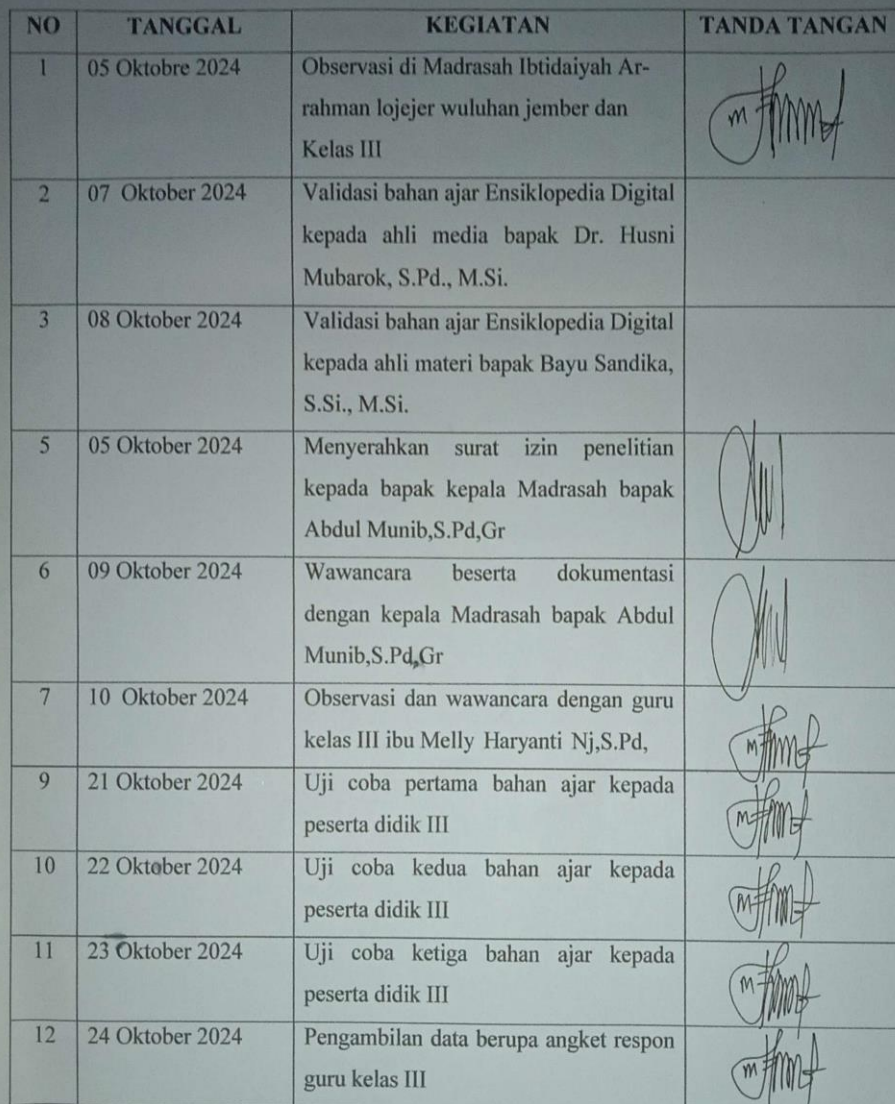 NO TANGGAL KEGIATAN TANDA TANGAN
1 05 Oktobre 2024 Observasi di Madrasah Ibtidaiyah Ar-
rahman lojejer wuluhan jember dan
Kelas III
2 07 Oktober 2024 Validasi bahan ajar Ensiklopedia Digital
kepada ahli media bapak Dr. Husni
Mubarok, S.Pd., M.Si.
3 08 Oktober 2024 Validasi bahan ajar Ensiklopedia Digital
kepada ahli materi bapak Bayu Sandika,
S.Si., M.Si.
5 05 Oktober 2024 Menyerahkan surat izin penelitian
kepada bapak kepala Madrasah bapak
Abdul Munib,S.Pd,Gr
6 09 Oktober 2024 Wawancara beserta dokumentasi
dengan kepala Madrasah bapak Abdul
Munib,S.Pd,Gr
7 10 Oktober 2024 Observasi dan wawancara dengan guru
kelas III ibu Melly Haryanti Nj,S.Pd,
9 21 Oktober 2024 Uji coba pertama bahan ajar kepada
peserta didik III
10 22 Oktober 2024 Uji coba kedua bahan ajar kepada
peserta didik III
11 23 Oktober 2024 Uji coba ketiga bahan ajar kepada
peserta didik III
12 24 Oktober 2024 Pengambilan data berupa angket respon
guru kelas III